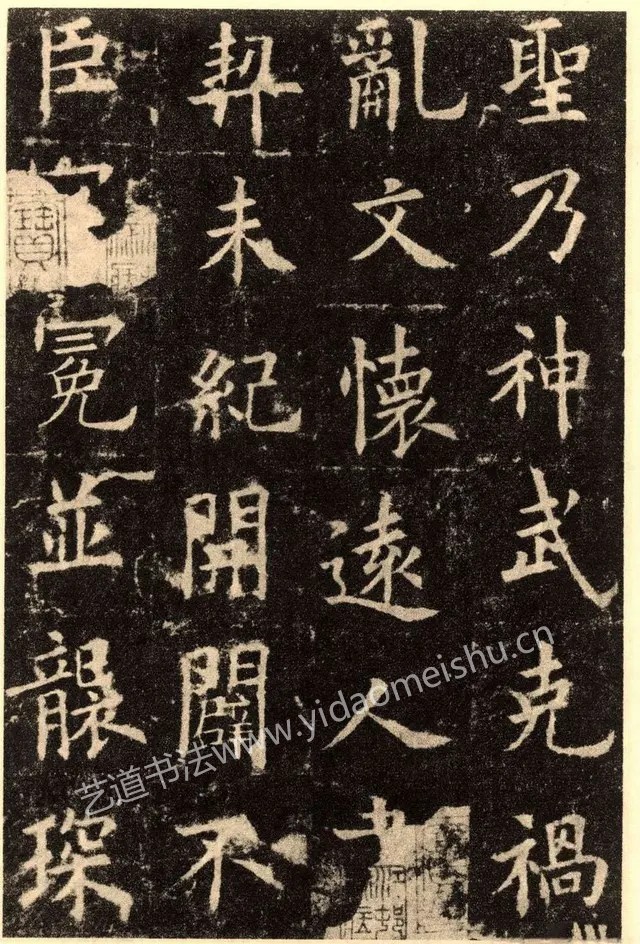 聖乃神武克禍
亂文懷遠人
契未紀開闢不
臣冕並襲琛
艺道书法www.yidaomeishu.cn